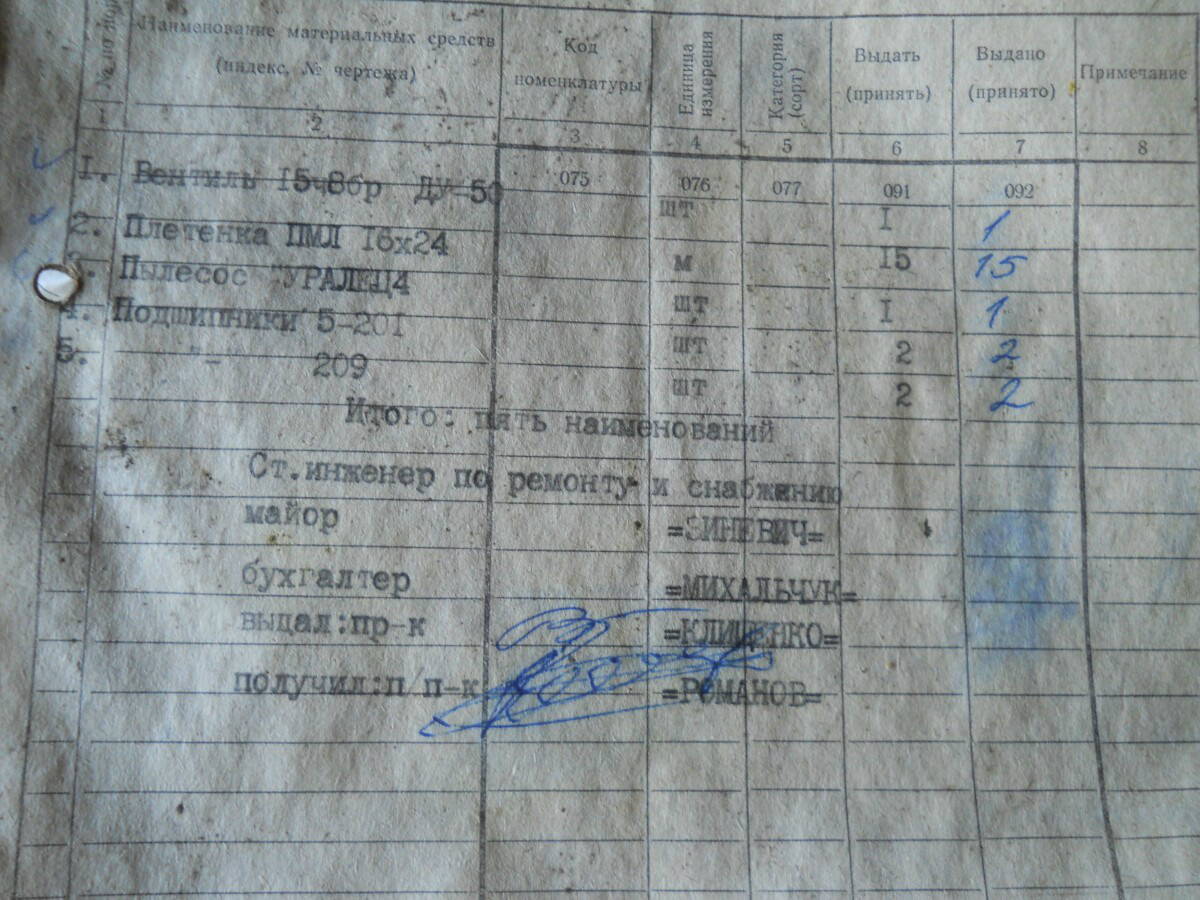 № по пор.
Наименование материальных средств
(индекс, № чертежа)
Код
номенклатуры
Единица
измерения
Категория
(сорт)
Выдать
(принять)
Выдано
(принято)
Примечание
1 2 3 4 5 6 7 8
075 076 077 091 092
I. Вентиль 15ч8бр ДУ-50 шт I 1
2. Плетенка ПМЛ 16х24 м 15 15
3. Пылесос "УРАЛЕЦ4 шт I 1
4. Подшипники 5-20I шт 2 2
5. -"- 209 шт 2 2
Итого: пять наименований
Ст.инженер по ремонту и снабжению
майор =ЗИНЕВИЧ=
бухгалтер =МИХАЛЬЧУК=
выдал:пр-к =КЛИЩЕНКО=
получил:п/п-к =РОМАНОВ=